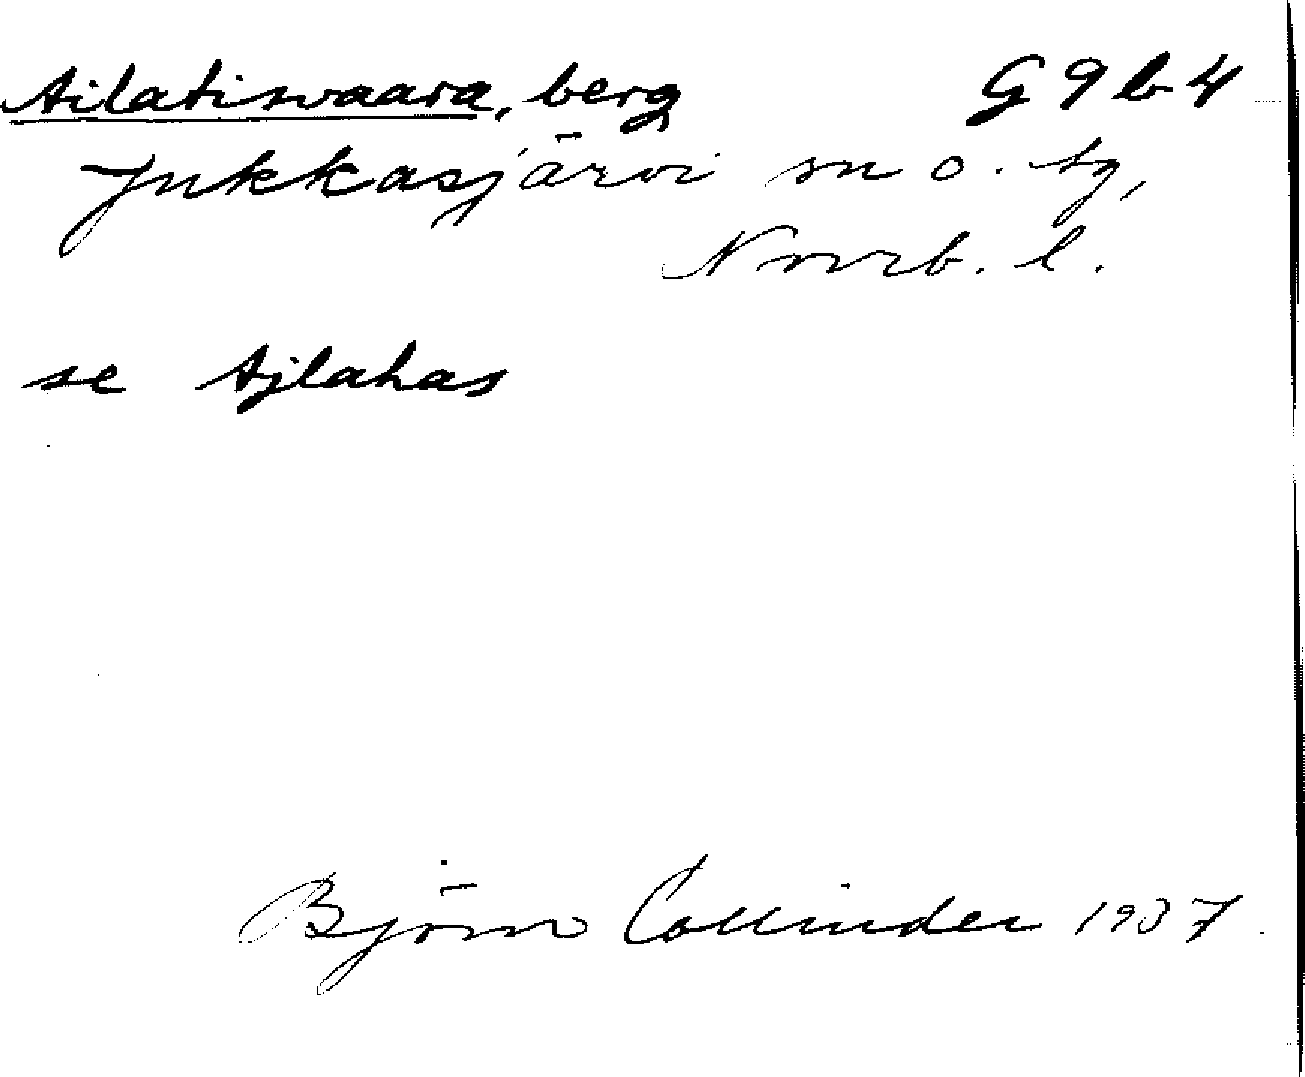 Ailatiswaara, berg G 9 b 4
Jukkasjärvi sn o. tg,
Norrb. l.
se Ajlahas
Björn Collinder 1937